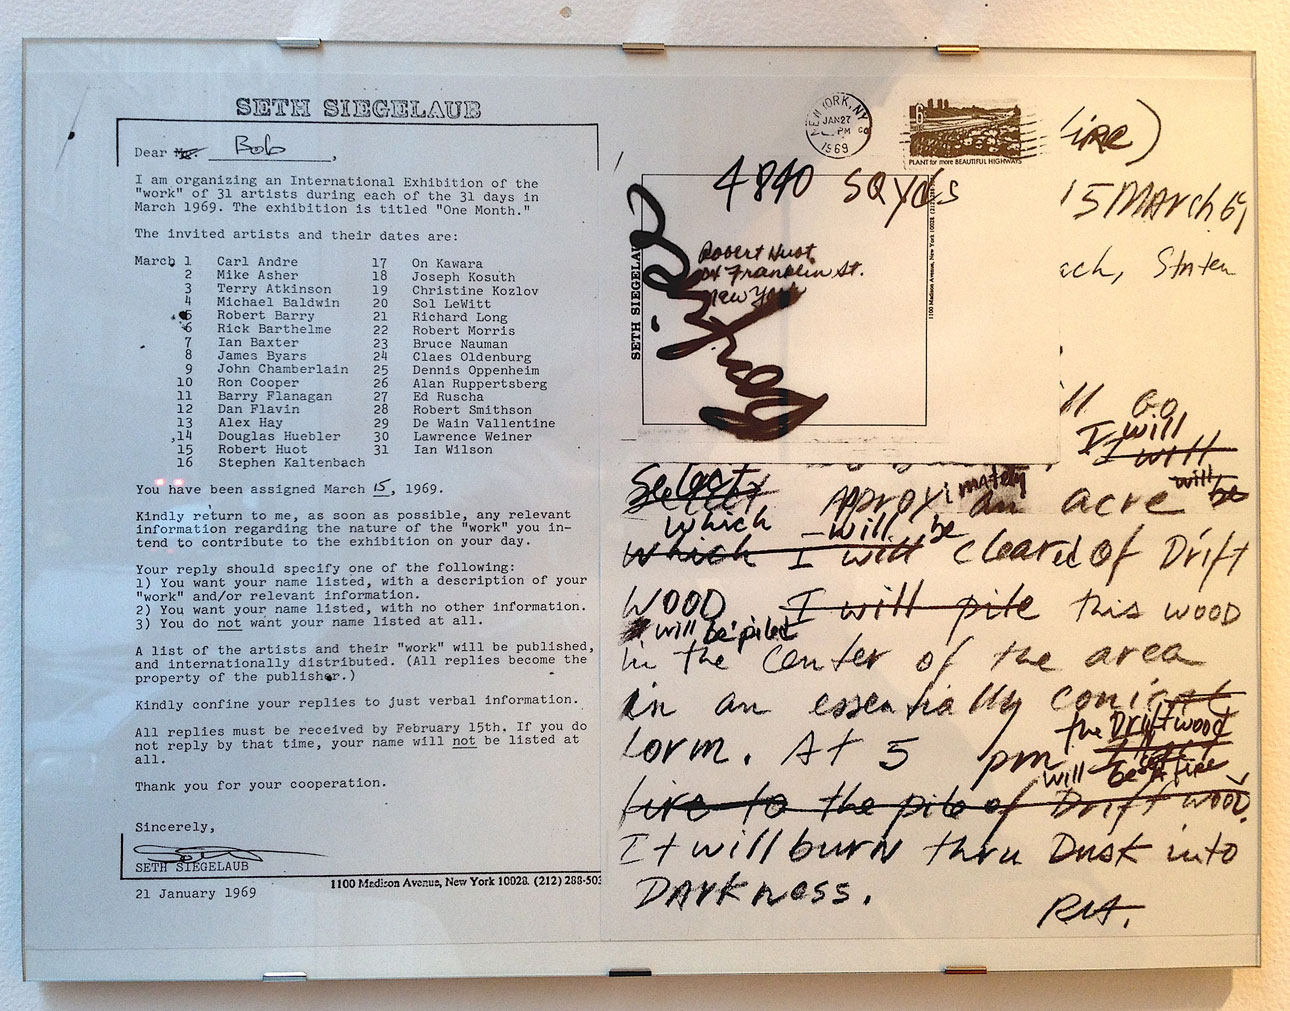 SETH SIEGELAUB
Dear Mr. Bob,
I am organizing an International Exhibition of the
"work" of 31 artists during each of the 31 days in
March 1969. The exhibition is titled "One Month."
The invited artists and their dates are:
March 1 Carl Andre 17 On Kawara
2 Mike Asher 18 Joseph Kosuth
3 Terry Atkinson 19 Christine Kozlov
4 Michael Baldwin 20 Sol LeWitt
5 Robert Barry 21 Richard Long
6 Rick Barthelme 22 Robert Morris
7 Ian Baxter 23 Bruce Nauman
8 James Byars 24 Claes Oldenburg
9 John Chamberlain 25 Dennis Oppenheim
10 Ron Cooper 26 Alan Ruppertsberg
11 Barry Flanagan 27 Ed Ruscha
12 Dan Flavin 28 Robert Smithson
13 Alex Hay 29 De Wain Vallentine
14 Douglas Huebler 30 Lawrence Weiner
15 Robert Huot 31 Ian Wilson
16 Stephen Kaltenbach
You have been assigned March 15, 1969.
Kindly return to me, as soon as possible, any relevant
information regarding the nature of the "work" you in-
tend to contribute to the exhibition on your day.
Your reply should specify one of the following:
1) You want your name listed, with a description of your
"work" and/or relevant information.
2) You want your name listed, with no other information.
3) You do not want your name listed at all.
A list of the artists and their "work" will be published,
and internationally distributed. (All replies become the
property of the publisher.)
Kindly confine your replies to just verbal information.
All replies must be received by February 15th. If you do
not reply by that time, your name will not be listed at
all.
Thank you for your cooperation.
Sincerely,
SETH SIEGELAUB
1100 Madison Avenue, New York 10028. (212) 288-503
21 January 1969
NEW YORK, N.Y.
JAN 27
PM
1969
6
PLANT for more BEAUTIFUL HIGHWAYS
4840 sq yds
Robert Huot
Franklin St.
New York
SETH SIEGELAU
1100 Madison Avenue, New York 10028.
15 March 69
ach, Staten
ll Go
I will
I will
Select approximately an acre will be
which will be
which I will cleared of Drift
wood I will pile this wood
will be piled
in the center of the area
in an essentially conical
form. At 5 pm the Driftwood
will be set a fire
fire to the pile of Drift wood.
It will burn thru Dusk into
Darkness.